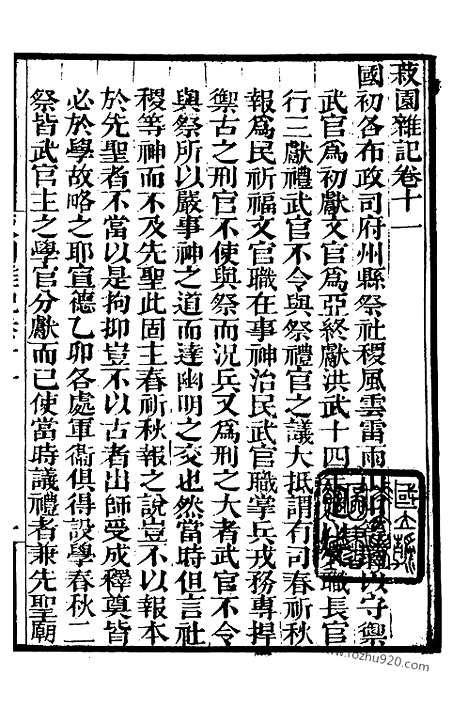 菽園雜記卷十一
國初各布政司府州縣祭社稷風雲雷雨山川以守禦
武官爲初獻文官爲亞終獻洪武十四年職長官
行三獻禮武官不令與祭禮官之議大抵謂有司春祈秋
報爲民祈福文官職在事神治民武官職掌兵戎務專捍
禦古之刑官不使與祭而況兵又爲刑之大者武官不令
與祭所以嚴事神之道而達幽明之交也然當時但言社
稷等神而不及先聖此固主春祈秋報之說豈不以報本
於先聖者不當以是拘抑豈不以古者出師受成釋奠皆
必於學故略之耶宣德乙卯各處軍衞俱得設學春秋二
祭皆武官主之學官分獻而已使當時議禮者兼先聖朝
www.fozhu920.com